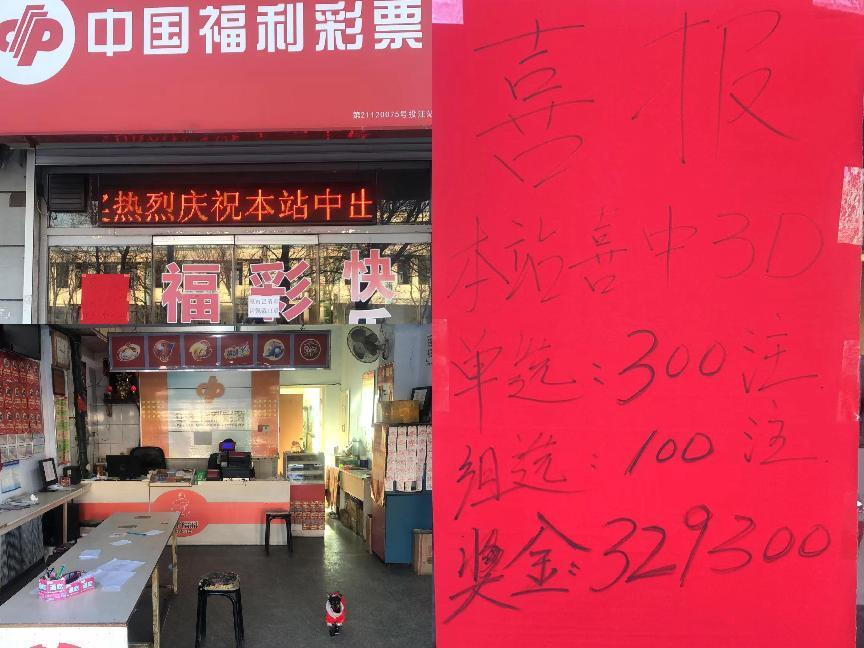 中国福利彩票
第21120075号投注站
热烈庆祝本站中出
福彩快乐
喜报
本站喜中3D
单选：300注
组选：100注
奖金：329300